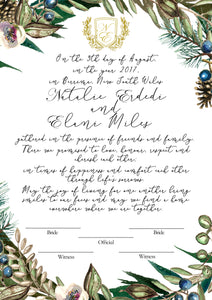 On the 5th day of August,
in the year 2017,
in Berrima, New South Wales
Natalie Erdedi
and
Elani Miles
gathered in the presence of friends and family.
There we promised to love, honour, respect and
cherish each other.
in times of happiness and comfort each other
through life's sorrows.
May the joy of loving for one another bring
smiles to our faces and may we find a home
somewhere when we are together
Bride
Bride
Official
Witness
Witness